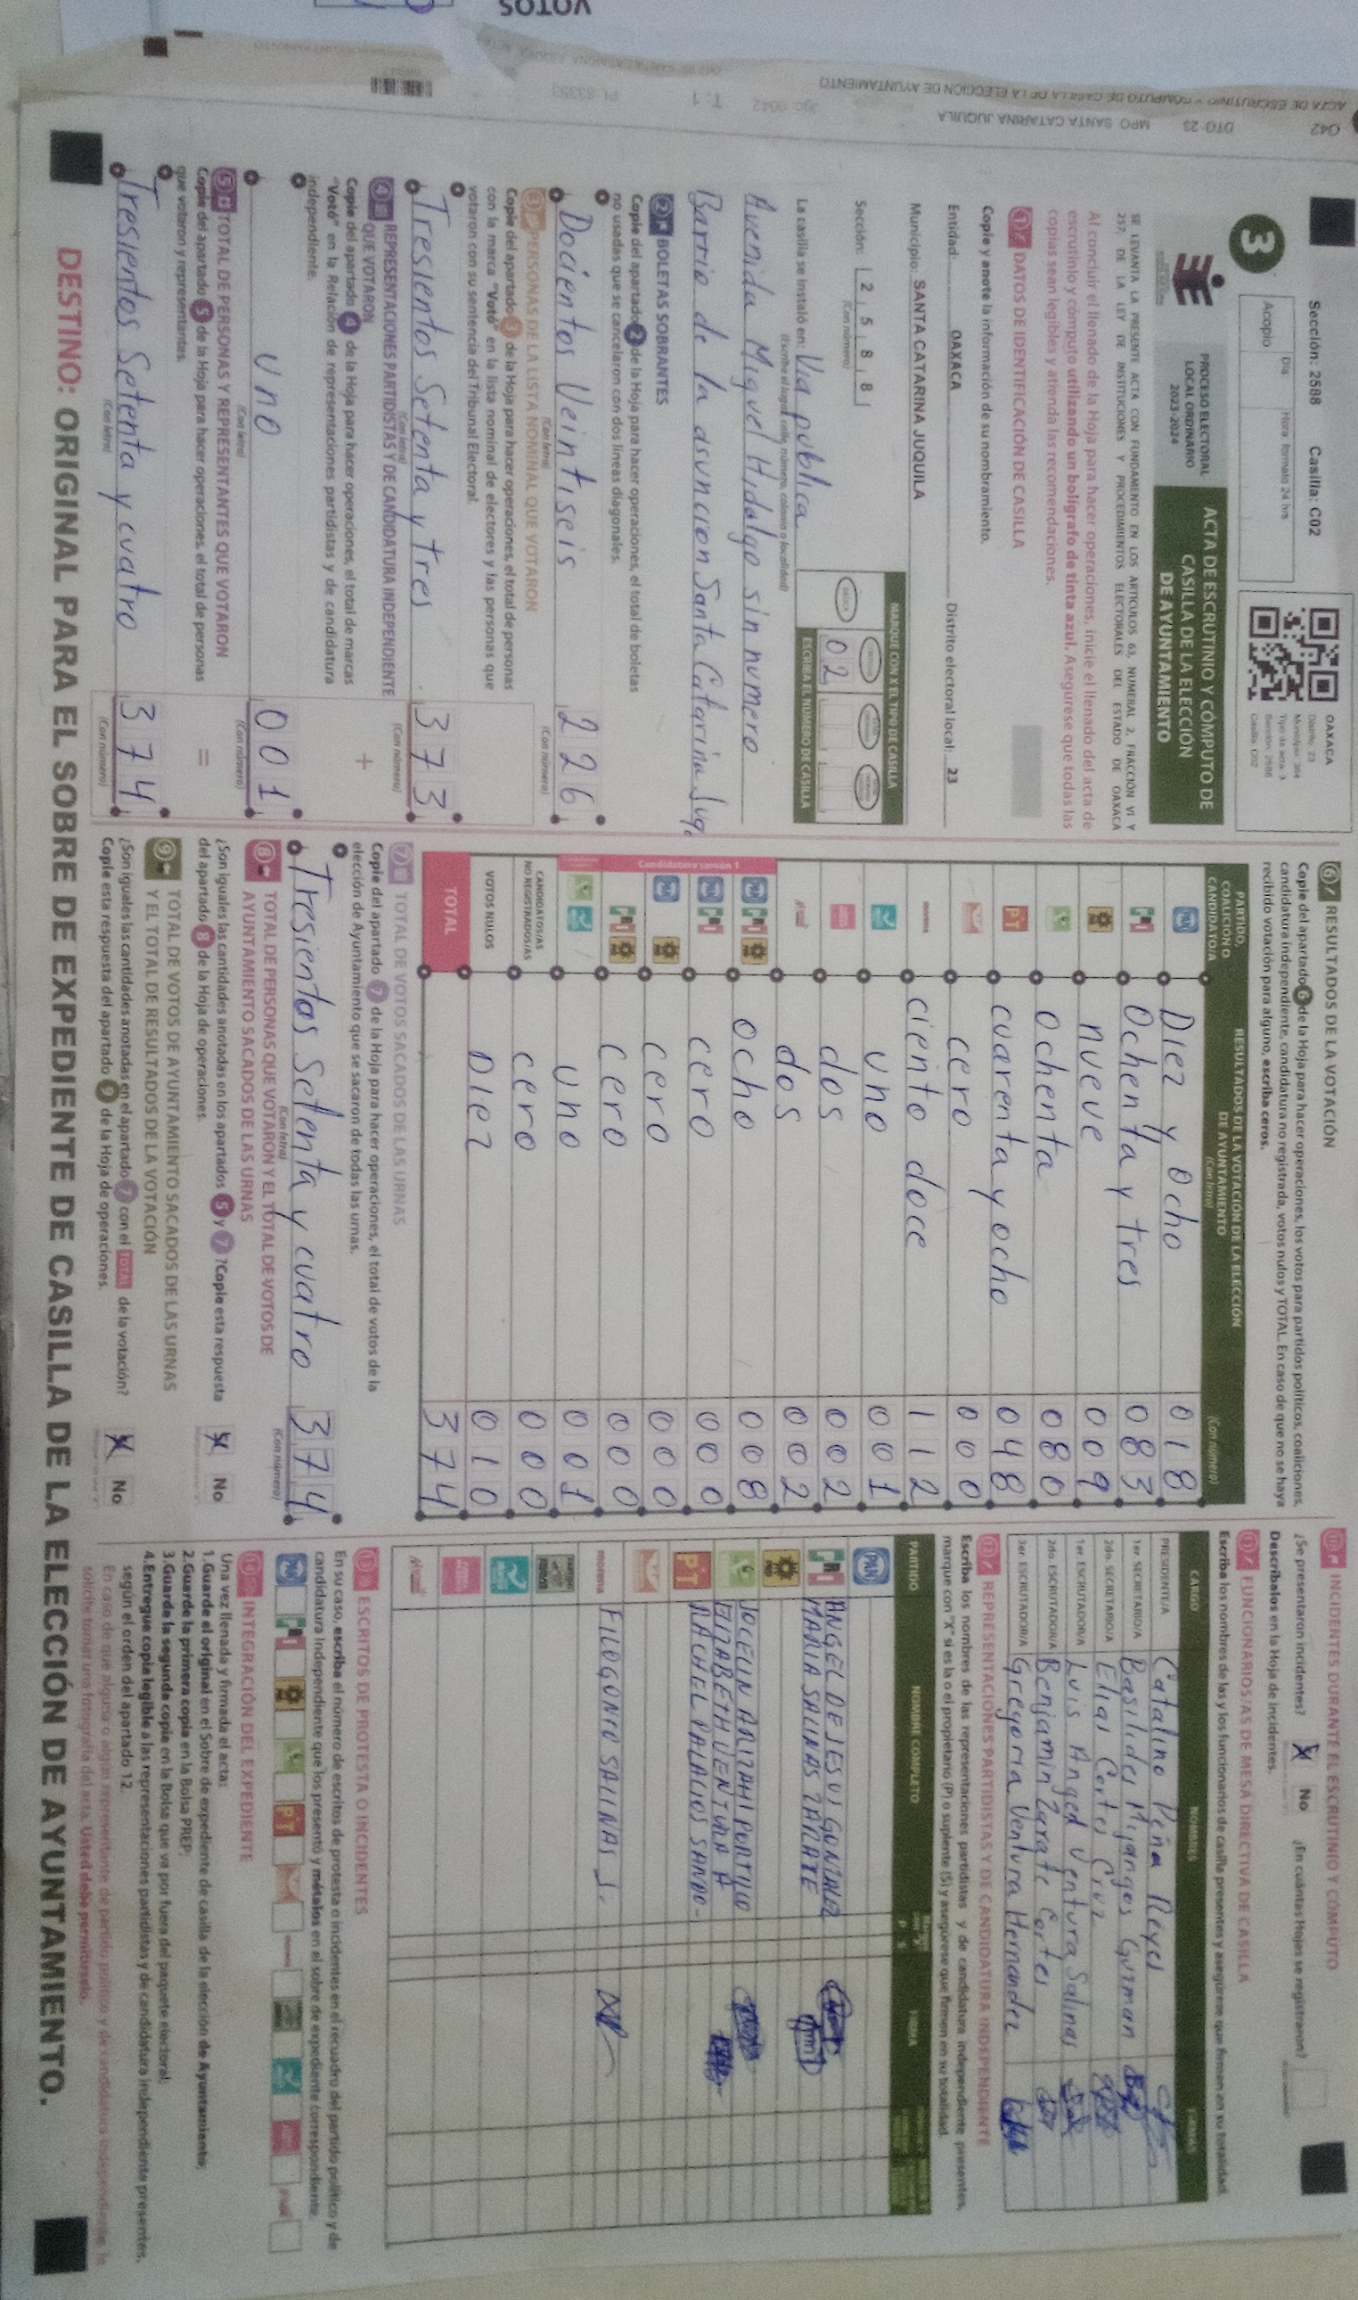 Sección: 2588 Casilla: C02
3
Acopio
Día Hora formato 24 hrs
OAXACA
PROCESO ELECTORAL
LOCAL ORDINARIO
2023-2024
ACTA DE ESCRUTINIO Y CÓMPUTO DE
CASILLA DE LA ELECCIÓN
DE AYUNTAMIENTO
SE LEVANTA LA PRESENTE ACTA CON FUNDAMENTO EN LOS ARTÍCULOS 63, NUMERAL 2, FRACCIÓN VI Y
257, DE LA LEY DE INSTITUCIONES Y PROCEDIMIENTOS ELECTORALES DEL ESTADO DE OAXACA
Al concluir el llenado de la Hoja para hacer operaciones, inicie el llenado del acta de
escrutinio y cómputo utilizando un bolígrafo de tinta azul. Asegúrese que todas las
copias sean legibles y atienda las recomendaciones.
1 DATOS DE IDENTIFICACIÓN DE CASILLA
Copie y anote la información de su nombramiento.
Entidad: OAXACA Distrito electoral local: 23
Municipio: SANTA CATARINA JUQUILA
Sección: 2 5 8 8
(Con número)
MARQUE CON X EL TIPO DE CASILLA
02
ESCRIBA EL NÚMERO DE CASILLA
La casilla se instaló en: Via publica
(Escriba el lugar, calle, número, colonia o localidad)
Avenida Miguel Hidalgo sin numero
Barrio de la asuncion Santa Catarina Juq.
2 BOLETAS SOBRANTES
Copie del apartado 2 de la Hoja para hacer operaciones, el total de boletas
no usadas que se cancelaron con dos líneas diagonales.
Docientos Veintiseis 226
(Con letra) (Con número)
3 PERSONAS DE LA LISTA NOMINAL QUE VOTARON
Copie del apartado 3 de la Hoja para hacer operaciones, el total de personas
con la marca "Votó" en la lista nominal de electores y las personas que
votaron con su sentencia del Tribunal Electoral.
Tresientos Setenta y tres 373
(Con letra) (Con número)
4 REPRESENTACIONES PARTIDISTAS Y DE CANDIDATURA INDEPENDIENTE
QUE VOTARON +
Copie del apartado 4 de la Hoja para hacer operaciones, el total de marcas
"Votó" en la Relación de representaciones partidistas y de candidatura
independiente.
uno 001
(Con letra) (Con número)
5 TOTAL DE PERSONAS Y REPRESENTANTES QUE VOTARON =
Copie del apartado 5 de la Hoja para hacer operaciones, el total de personas
que votaron y representantes.
Tresientos Setenta y cuatro 374
(Con letra) (Con número)
6 RESULTADOS DE LA VOTACIÓN
Copie del apartado 6 de la Hoja para hacer operaciones, los votos para partidos políticos, coaliciones,
candidatura independiente, candidatura no registrada, votos nulos y TOTAL. En caso de que no se haya
recibido votación para alguno, escriba ceros.
PARTIDO,
COALICIÓN O
CANDIDATO/A
RESULTADOS DE LA VOTACIÓN DE LA ELECCIÓN
DE AYUNTAMIENTO
(Con letra) (Con número)
Diez y Ocho 018
Ochenta y tres 083
nueve 009
Ochenta 080
PT cuarenta y ocho 048
cero 000
morena ciento doce 112
uno 001
dos 002
dos 002
Candidatura común 1
ocho 008
cero 000
cero 000
cero 000
uno 001
CANDIDATOS/AS
NO REGISTRADOS/AS cero 000
VOTOS NULOS Diez 010
TOTAL 374
7 TOTAL DE VOTOS SACADOS DE LAS URNAS
Copie del apartado 7 de la Hoja para hacer operaciones, el total de votos de la
elección de Ayuntamiento que se sacaron de todas las urnas.
Tresientos Setenta y cuatro 374
(Con letra) (Con número)
8 TOTAL DE PERSONAS QUE VOTARON Y EL TOTAL DE VOTOS DE
AYUNTAMIENTO SACADOS DE LAS URNAS
¿Son iguales las cantidades anotadas en los apartados 5 y 7? Copie esta respuesta
del apartado 8 de la Hoja de operaciones. No
9 TOTAL DE VOTOS DE AYUNTAMIENTO SACADOS DE LAS URNAS
Y EL TOTAL DE RESULTADOS DE LA VOTACIÓN
¿Son iguales las cantidades anotadas en el apartado 7 con el TOTAL de la votación?
Copie esta respuesta del apartado 9 de la Hoja de operaciones. No
10 INCIDENTES DURANTE EL ESCRUTINIO Y CÓMPUTO
¿Se presentaron incidentes? No ¿En cuántas Hojas se registraron?
Descríbalos en la Hoja de Incidentes.
11 FUNCIONARIOS/AS DE MESA DIRECTIVA DE CASILLA
Escriba los nombres de las y los funcionarios de casilla presentes y asegúrese que firmen en su totalidad.
CARGO NOMBRES FIRMAS
PRESIDENTE/A Catalino Peña Reyes
1er. SECRETARIO/A Basilides Mijangos Guzman
2do. SECRETARIO/A Elias Cortes Cruz
1er. ESCRUTADOR/A Luis Angel Ventura Salinas
2do. ESCRUTADOR/A Benjamin Zarate Cortes
3er. ESCRUTADOR/A Gregoria Ventura Hernandez
12 REPRESENTACIONES PARTIDISTAS Y DE CANDIDATURA INDEPENDIENTE
Escriba los nombres de las representaciones partidistas y de candidatura independiente presentes,
marque con "X" si es la o el propietario (P) o suplente (S) y asegúrese que firmen en su totalidad.
PARTIDO NOMBRE COMPLETO P S FIRMA
PAN
ANGEL DE JESUS GONZALEZ
MARIA SALINAS ZARATE
JOCELIN ARIZAHI PORTILLO
ELIZABETH VENTURA A
PT RACHEL PALACIOS SANDO-
morena FILOGONIO SALINAS J.
13 ESCRITOS DE PROTESTA O INCIDENTES
En su caso, escriba el número de escritos de protesta o incidentes en el recuadro del partido político y de
candidatura independiente que los presentó y métalos en el sobre de expediente correspondiente.
PAN PT
14 INTEGRACIÓN DEL EXPEDIENTE
Una vez llenada y firmada el acta:
1.Guarde el original en el Sobre de expediente de casilla de la elección de Ayuntamiento;
2.Guarde la primera copia en la Bolsa PREP;
3.Guarde la segunda copia en la Bolsa que va por fuera del paquete electoral;
4.Entregue copia legible a las representaciones partidistas y de candidatura independiente presentes,
según el orden del apartado 12.
En caso de que alguna o algún representante de partido político y de candidatura independiente, le
solicite tomar una fotografía del acta, Usted debe permitírselo.
DESTINO: ORIGINAL PARA EL SOBRE DE EXPEDIENTE DE CASILLA DE LA ELECCIÓN DE AYUNTAMIENTO.
042 DTO 23 MPO SANTA CATARINA JUQUILA
ACTA DE ESCRUTINIO Y CÓMPUTO DE CASILLA DE LA ELECCIÓN DE AYUNTAMIENTO
VOTOS